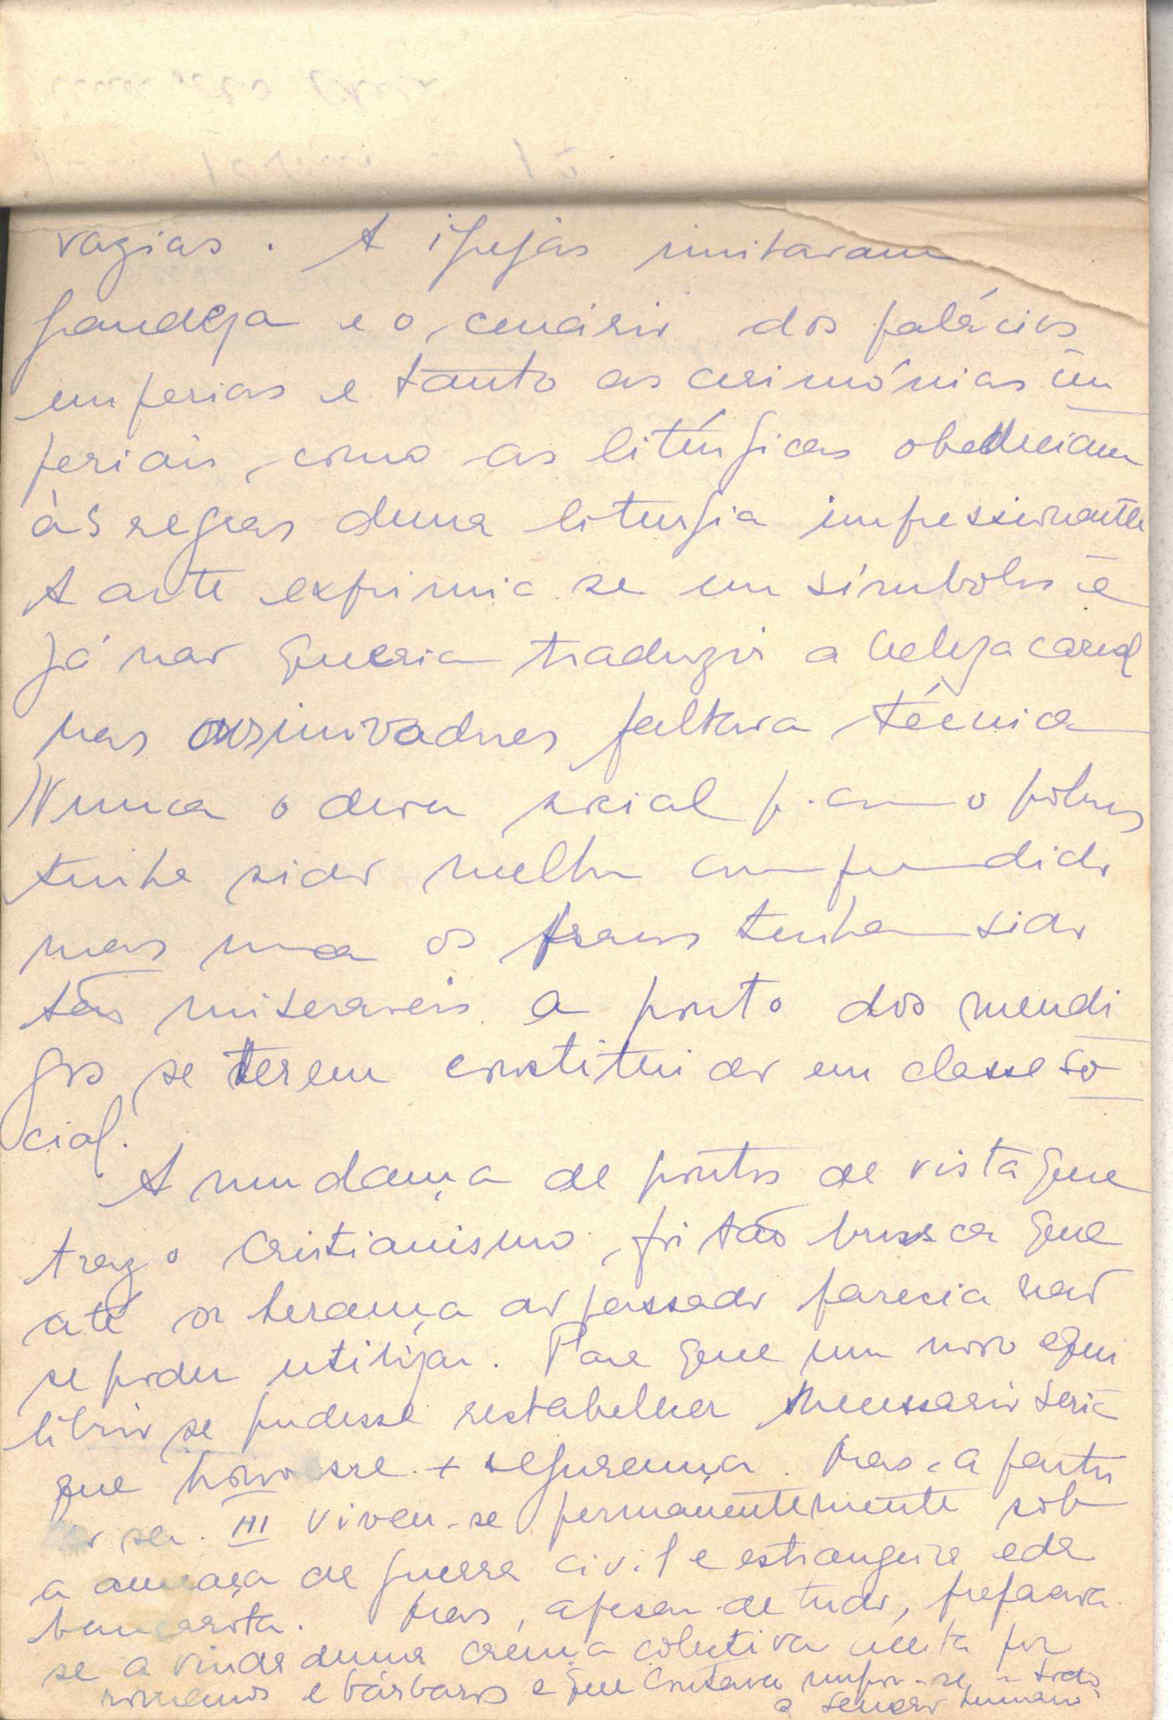 vazias. A igrejas imitaram
grandeza e o cenário dos palácios
imperias e tanto as cerimónias im
periais, como as litúrgicas obedeciam
às regras duma liturgia impressionante
A arte exprimia-se em símbolos e
já nao queria traduzir a beleza carnal
nas faltava técnica
Nunca o dever social p. com o pobres
tinha sido melhor compreendido
mas nunca os tenham sido
tão miseraveis a ponto dos mendi
gos se terem constituido em classe so
cial.
A mudança de pontos de vista que
traz o Cristianismo foi tão brusca que
até a herança do passado parecia não
se poder utilizar. Para que um novo equi
líbrio se pudesse restabelecer necessario seria
que houvesse + segurança. Mas, a partir
do séc. III viveu-se permanentemente sob
a ameaça de guerra civil e estrangeira e da
bancarrota. Mas, apesar de tudo, preparava-
se a vinda duma crença colectiva aceita por
romanos e bárbaros e que impor-se a todo
o humano